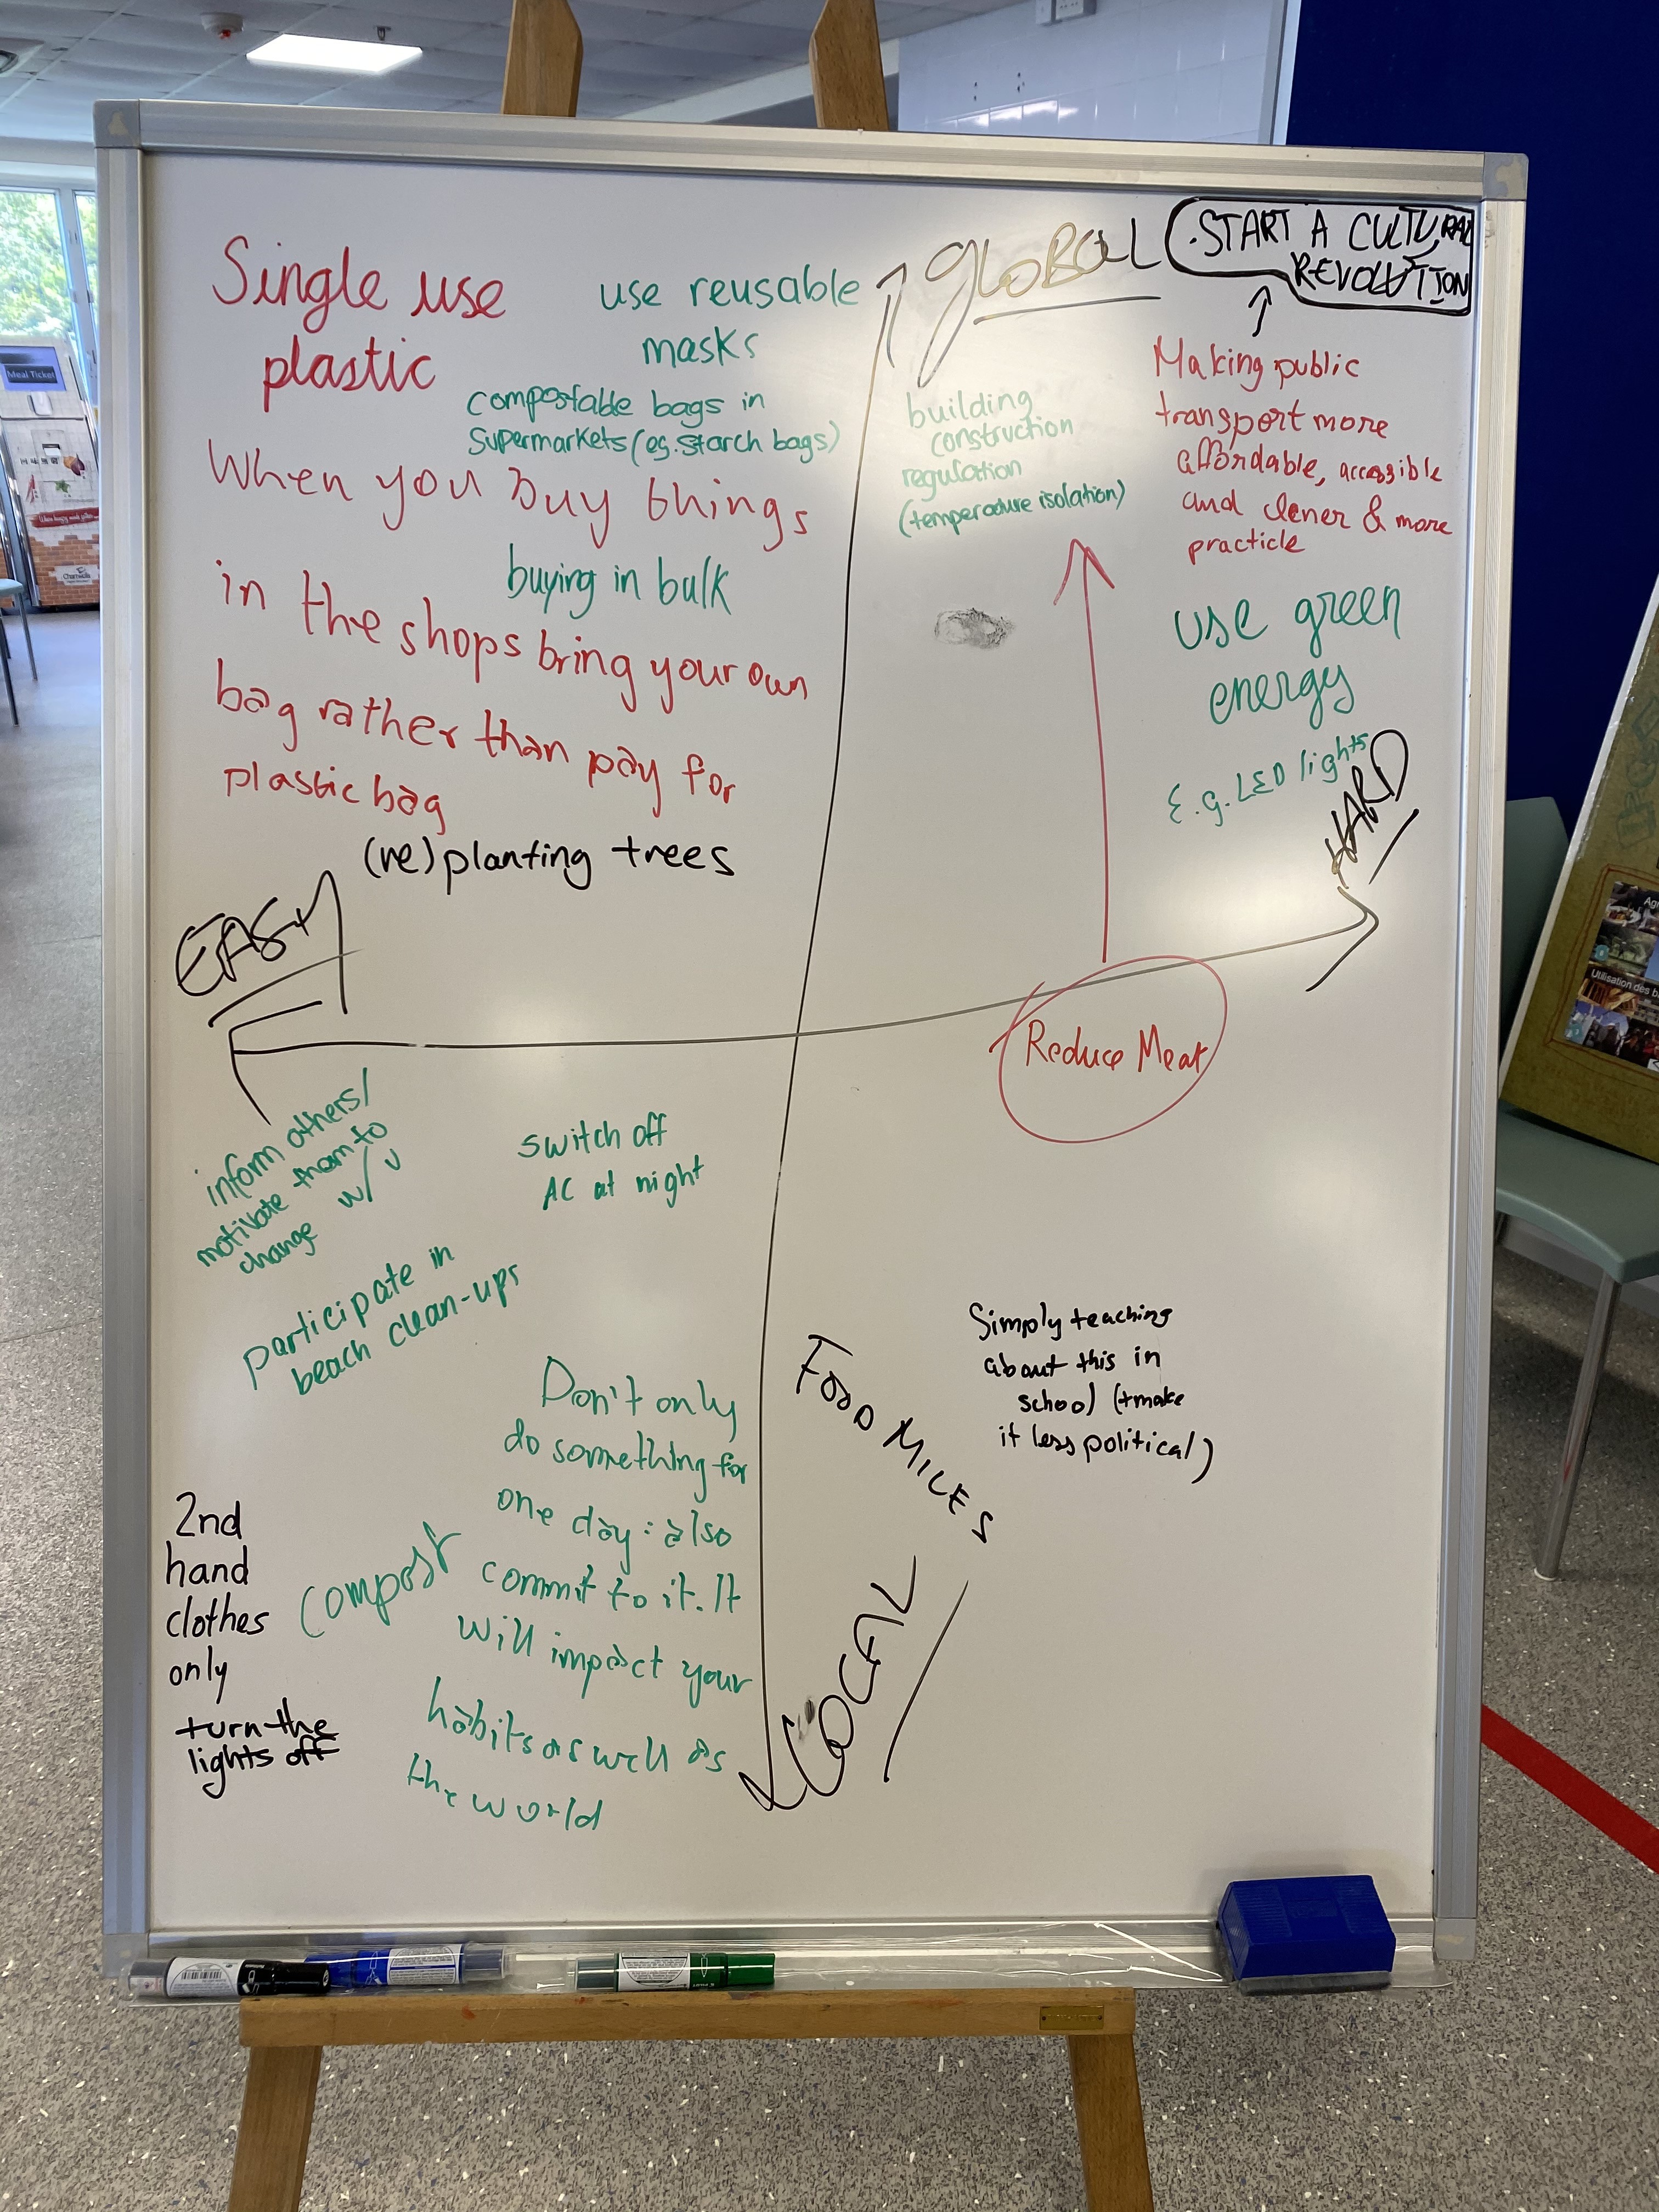 Single use
plastic
use reusable
masks
compostable bags in
supermarkets (eg. starch bags)
When you buy things
buying in bulk
in the shops bring your own
bag rather than pay for
plastic bag
(re)planting trees
gLOBAL
.START A CULTURAL
REVOLUTION
building
construction
regulation
(temperature isolation)
Making public
transport more
affordable, accessible
and clener & more
practicle
use green
energy
E.g. LED lights
HARD
EASY
Reduce Meat
inform others/
motivate them to
change w/ u
switch off
AC at night
participate in
beach clean-ups
Don't only
do something for
one day: also
commit to it. It
will impact your
habits as well as
the world
compost
2nd
hand
clothes
only
turn the
lights off
FOOD MILES
Simply teaching
about this in
school (+make
it less political)
LOCAL
Meal Ticket
Utilisation des b